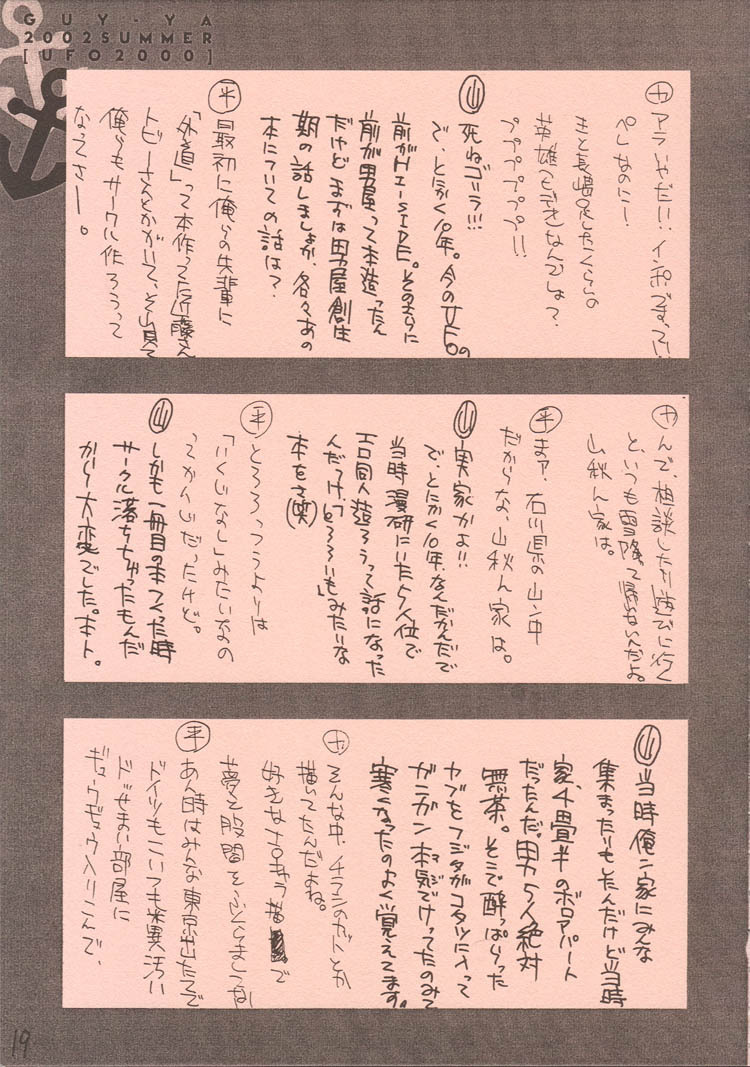 GUY-YA
2002SUMMER
[UFO2000]
カ アラいやだ!!インポですってい
ペしゃのにー
きと長嶋
英雄
プププププ!!
山 死ねゴリラ!!!
で、とにかく10年。今のU.F.O.の
前がHI-SIDE。そのまえに
前が男屋って本造ったん
だけどまずは男屋創生
期の話しましょか、各々あの
本についての話は?
平 最初に俺らの先輩に
「外道」って本作ってた近藤さん
トビーさんとかがいて、それ見て
俺らもサークル作ろうって
なってさー。
カ んで、相談したり遊びに行く
と、いつも雪降って帰れないんだよ。
山秋ん家は。
平 まァ、石川県の山ン中
だからな、山秋ん家は。
山 実家かよ!!
で、とにかく10年。なんだかんだで
当時漫研にいた5人位で
エロ同人造ろうって話になった
んだっけ、「とろろいも」みたいな
本をさ(笑)
平 とろろっつうよりは
「いくじなし」みたいなの
ってかんじだったけど。
山 しかも一冊目の本つくった時
サークル落ちちゃったもんだ
から大変でした。ホト。
山 当時俺ン家にみんな
集まったりもしたんだけど当時
家、4畳半のボロアパート
だったんだ。男5人絶対
無茶。そこで酔っぱらった
ヤブをフジタがコタツに入って
ガンガン本気でけってたのみて
マジ
寒くなったのよく覚えてます。
カ そんな中、チラシのカットとか
描いてたんだよね。
好きな
夢と股間をふくらましてな
平 あん時はみんな東京出たてで
ドイツもこいつも
ドせまい部屋に
ギュウギュウ入りこんで、
19